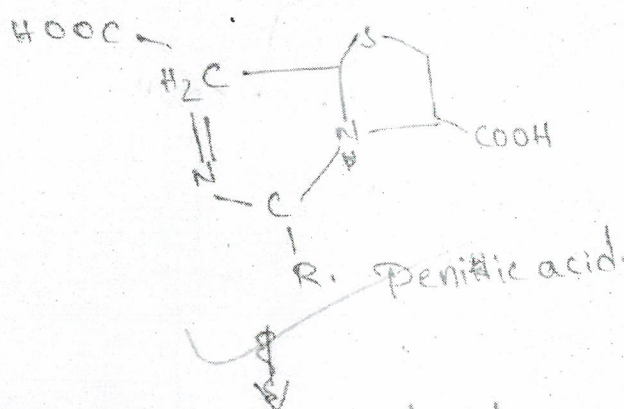 HOOC
S
H2C
N
COOH
N
C
R. Penillic acid.